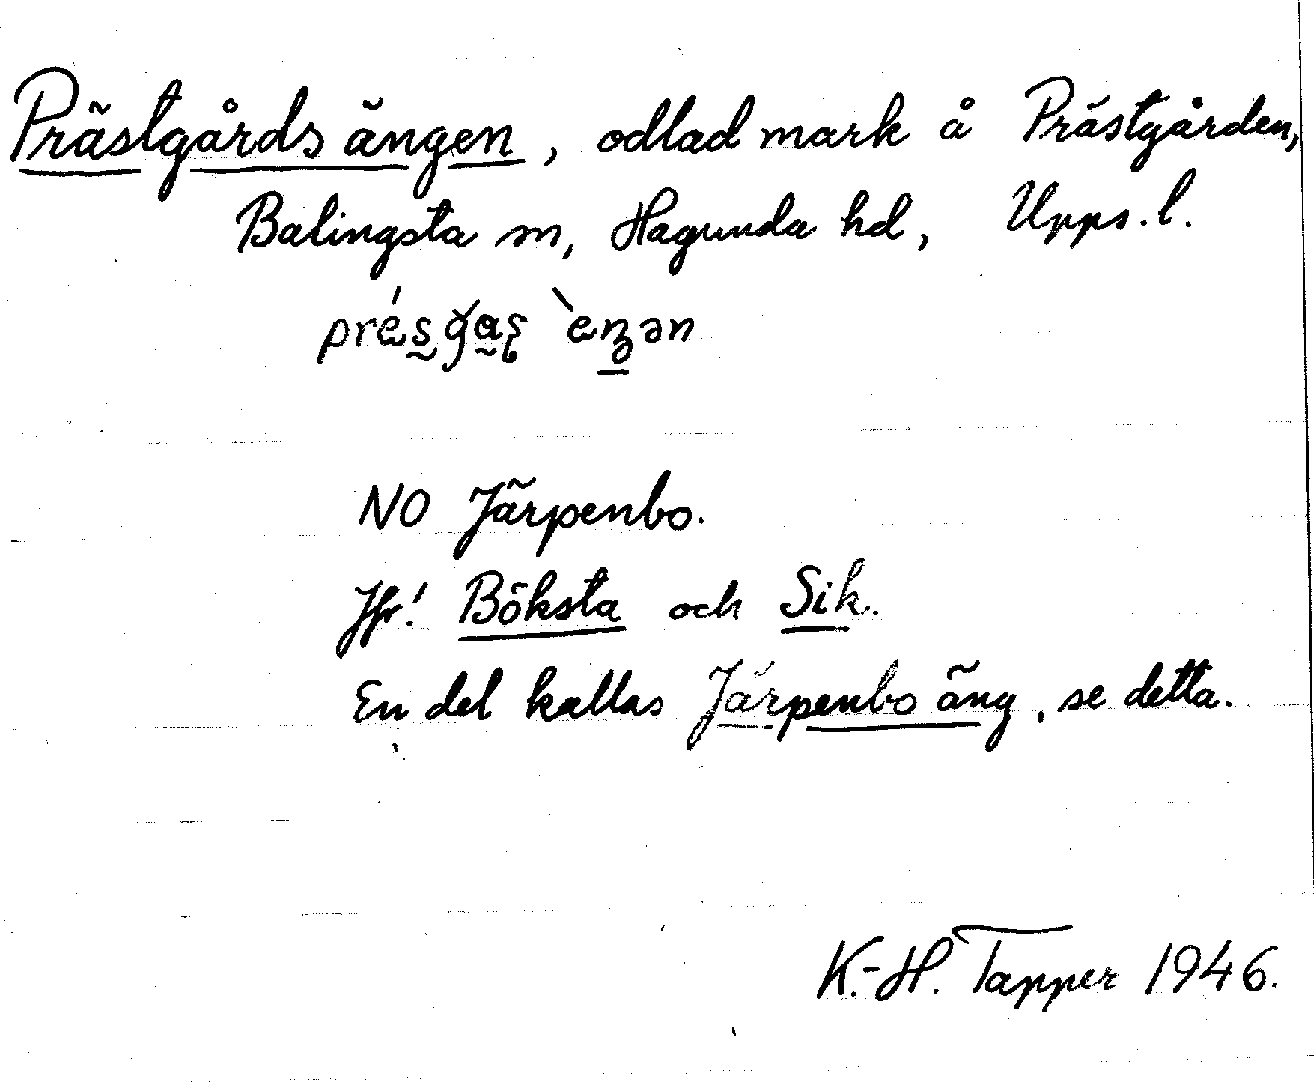 Prästgårdsängen, odlad mark å Prästgården,
Balingsta sn, Hagunda hd, Upps. l.
NO Järpenbo.
Jfr! Böksta och Sik.
En del kallas Järpenbo äng, se detta.
K.-H. Tapper 1946.